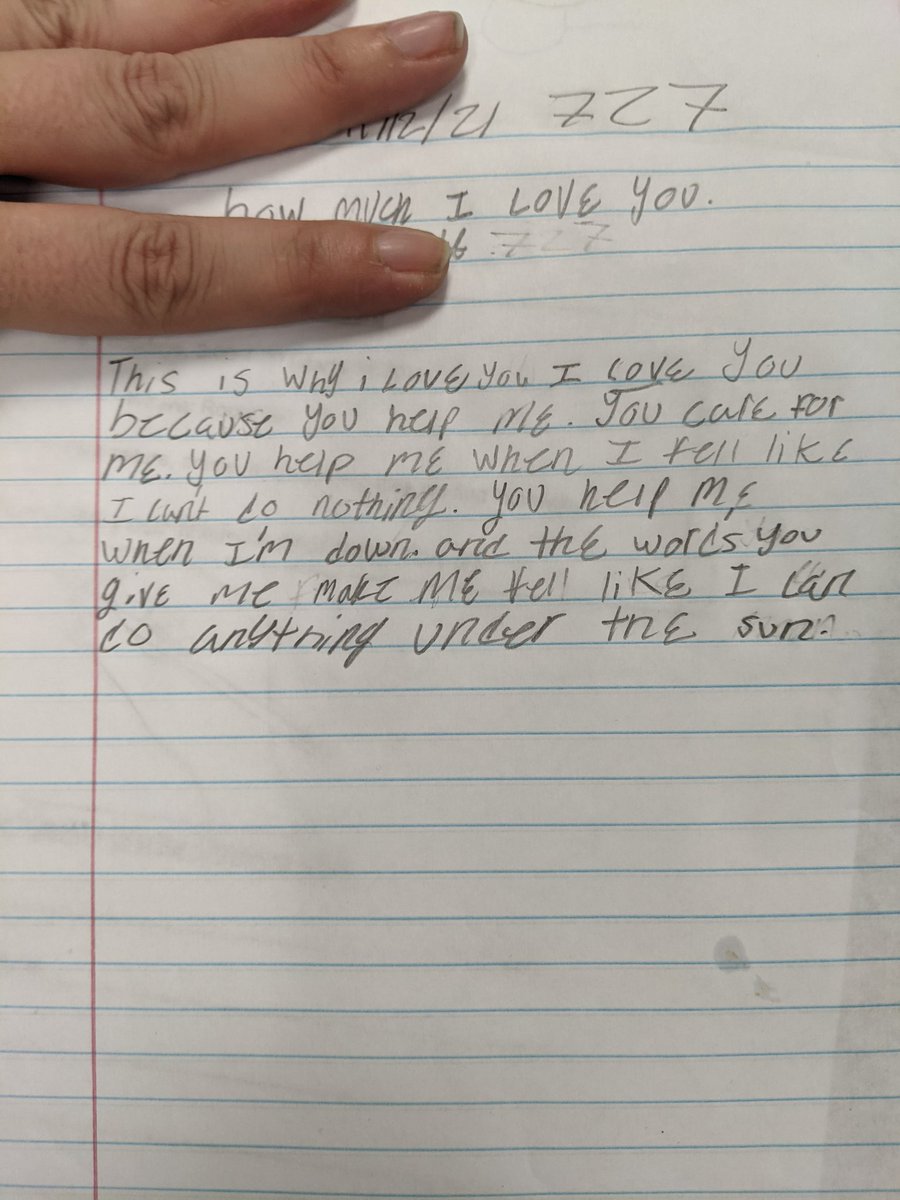 12/21 727
how much I LOVE YOU.
727
This is why i LOVE you I LOVE You
because you help ME. You care for
ME. you help ME when I fell like
I can't do nothing. you help ME
when I'm down. and the words you
give me make ME fell like I can
do anything under the sun.